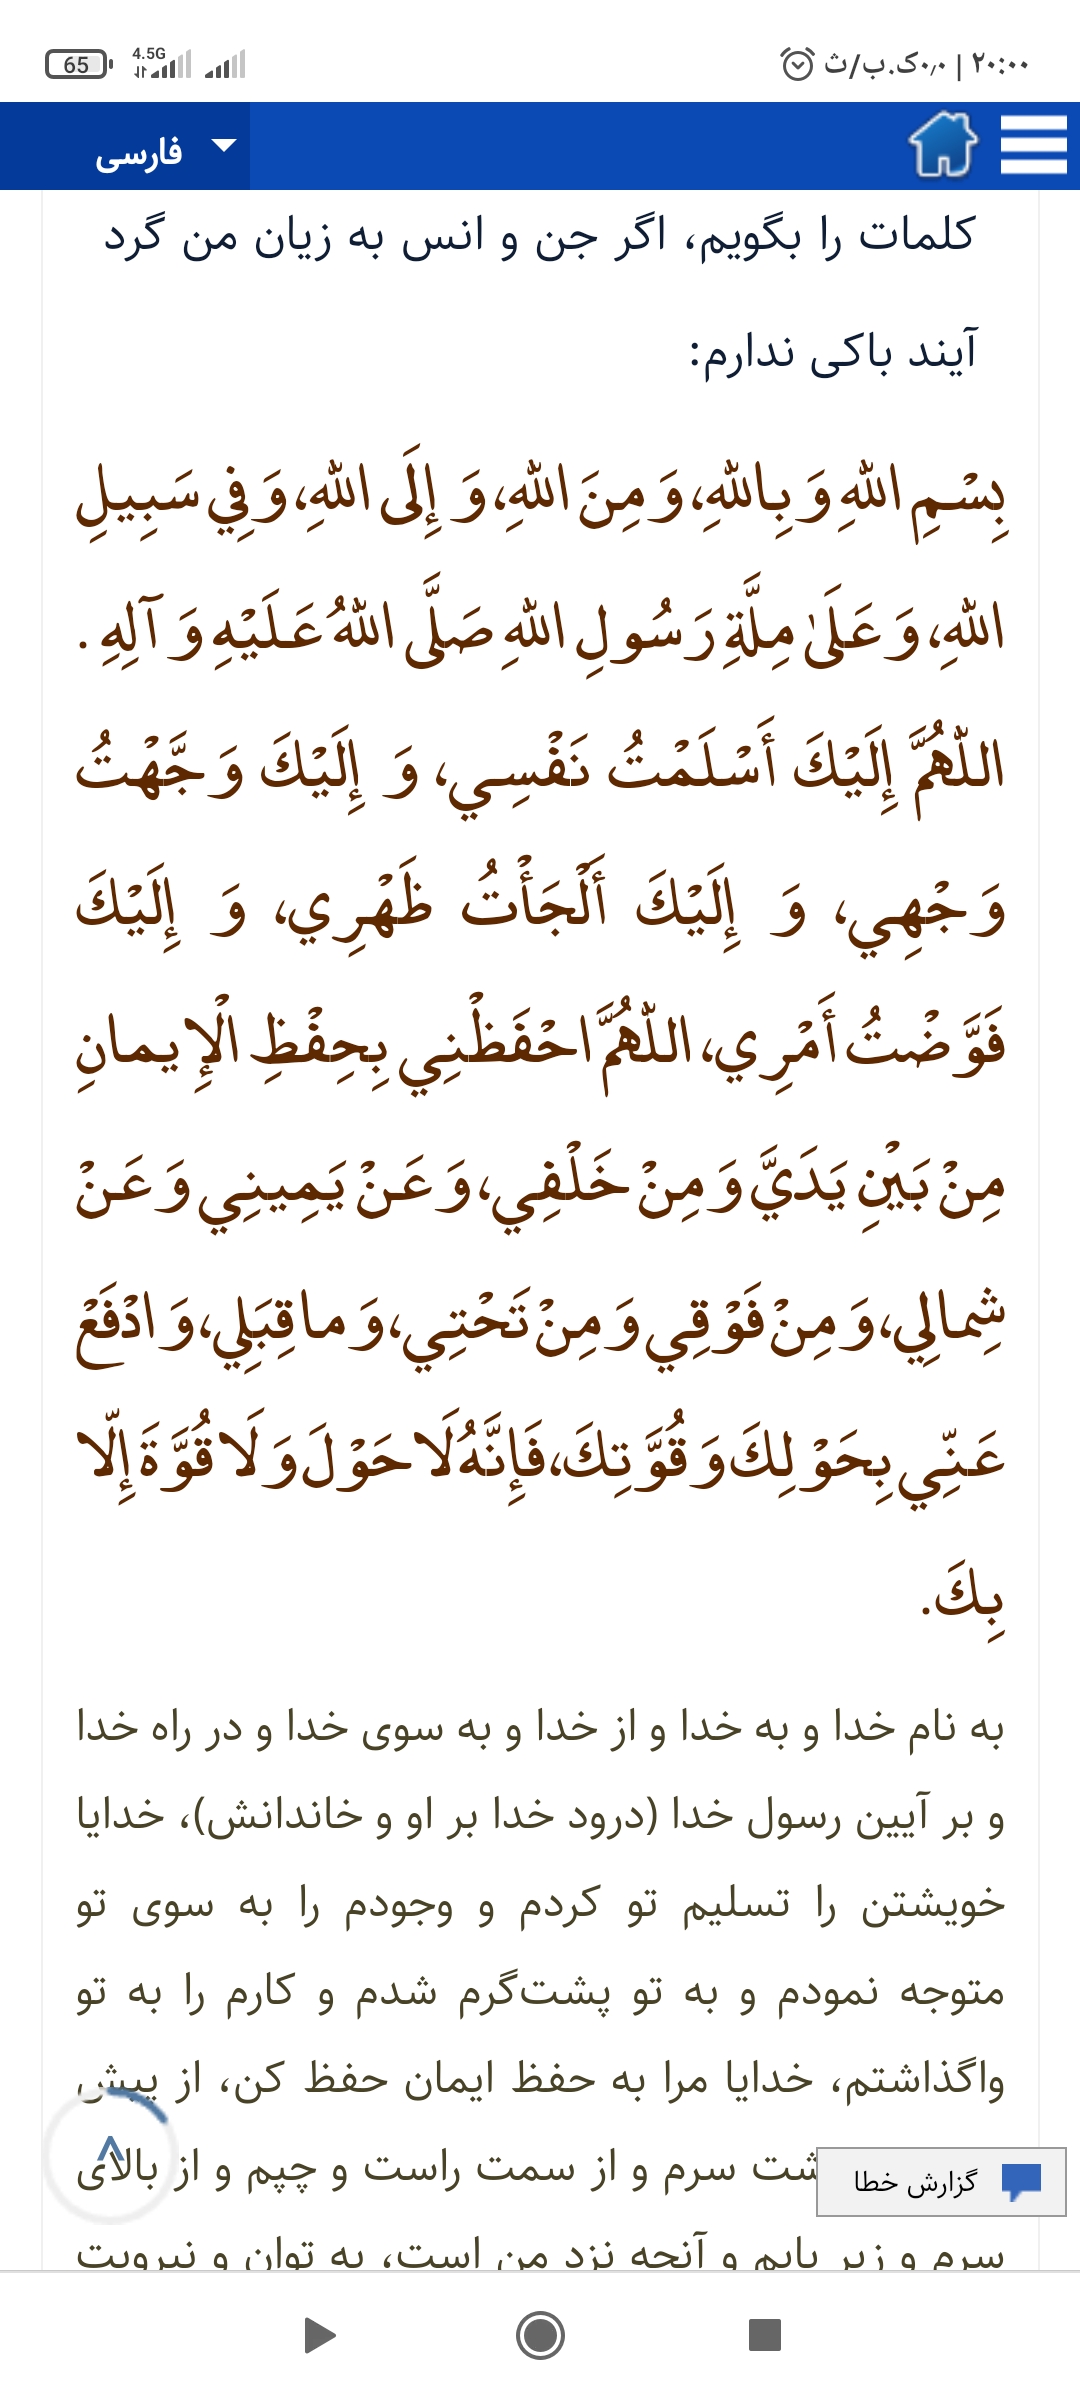 65
4.5G
۲۰:۰۰ | ۰٫۰ک.ب/ث
فارسی
کلمات را بگویم، اگر جن و انس به زیان من گرد
آیند باکی ندارم:
بِسْمِ اللّٰهِ وَ بِاللّٰهِ، وَ مِنَ اللّٰهِ، وَ إِلَى اللّٰهِ، وَ فِي سَبِيلِ
اللّٰهِ، وَ عَلَىٰ مِلَّةِ رَسُولِ اللّٰهِ صَلَّى اللّٰهُ عَلَيْهِ وَ آلِهِ .
اللّٰهُمَّ إِلَيْكَ أَسْلَمْتُ نَفْسِي، وَ إِلَيْكَ وَجَّهْتُ
وَجْهِي، وَ إِلَيْكَ أَلْجَأْتُ ظَهْرِي، وَ إِلَيْكَ
فَوَّضْتُ أَمْرِي، اللّٰهُمَّ احْفَظْنِي بِحِفْظِ الْإِيمانِ
مِنْ بَيْنِ يَدَيَّ وَ مِنْ خَلْفِي، وَ عَنْ يَمِينِي وَ عَنْ
شِمالِي، وَ مِنْ فَوْقِي وَ مِنْ تَحْتِي، وَ ما قِبَلِي، وَ ادْفَعْ
عَنِّي بِحَوْلِكَ وَ قُوَّتِكَ، فَإِنَّهُ لَا حَوْلَ وَ لَا قُوَّةَ إِلّا
بِكَ.
به نام خدا و به خدا و از خدا و به سوی خدا و در راه خدا
و بر آیین رسول خدا (درود خدا بر او و خاندانش)، خدایا
خویشتن را تسلیم تو کردم و وجودم را به سوی تو
متوجه نمودم و به تو پشت‌گرم شدم و کارم را به تو
واگذاشتم، خدایا مرا به حفظ ایمان حفظ کن، از پیش
شت سرم و از سمت راست و چپم و از بالای
گزارش خطا
سرم و زیر پایم و آنچه نزد من است، به توان و نیرویت